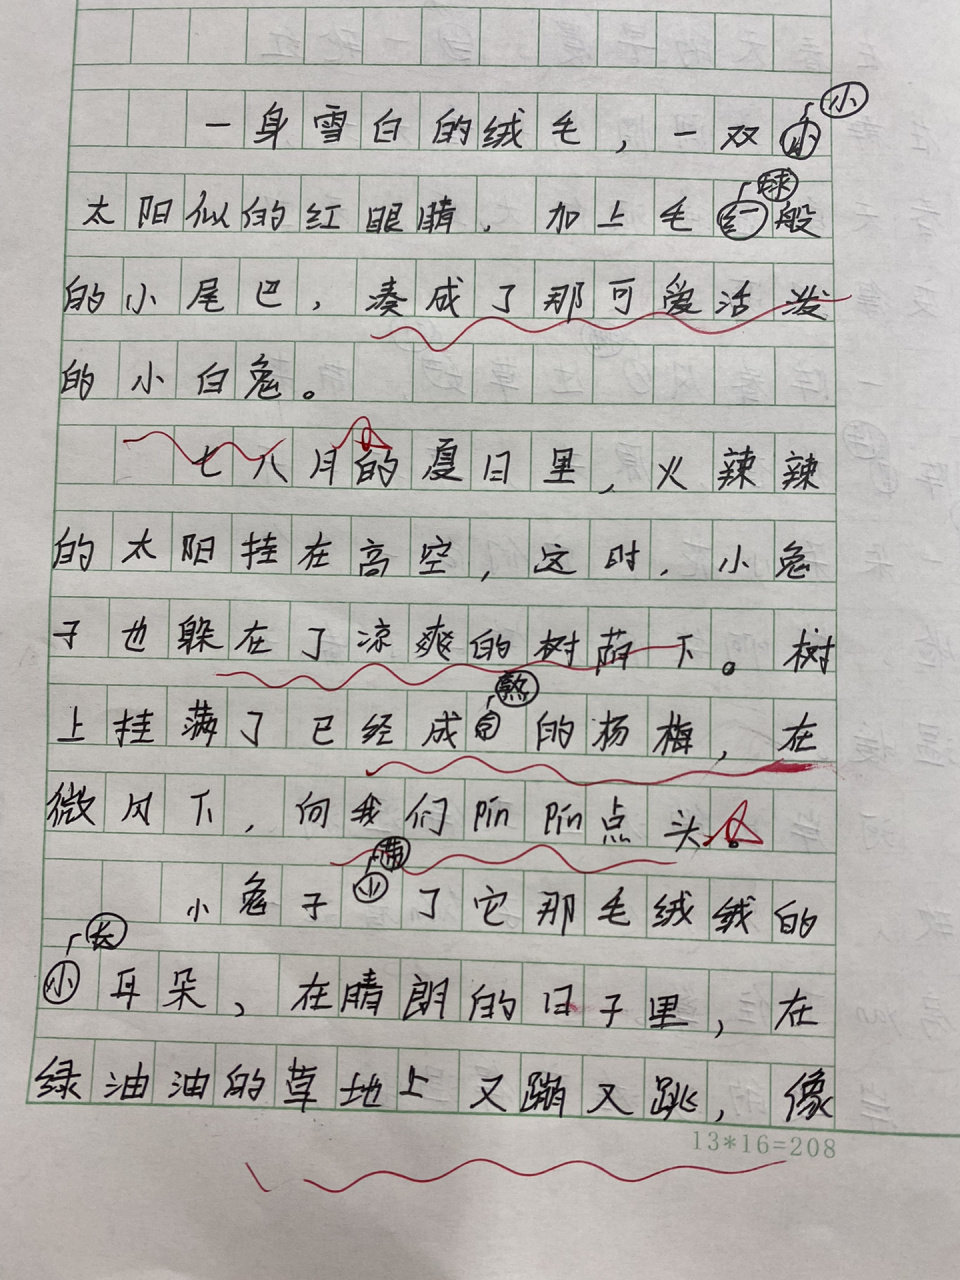 一身雪白的绒毛，一双小
太阳似的红眼睛，加上毛球般
的小尾巴，凑成了那可爱活泼
的小白兔。
七八月的夏日里，火辣辣
的太阳挂在高空，这时，小兔
子也躲在了凉爽的树荫下。树
上挂满了已经成熟的杨梅，在
微风下，向我们pin pin点头。
小兔子带了它那毛绒绒的
长耳朵，在晴朗的日子里，在
绿油油的草地上又蹦又跳，像
13*16=208